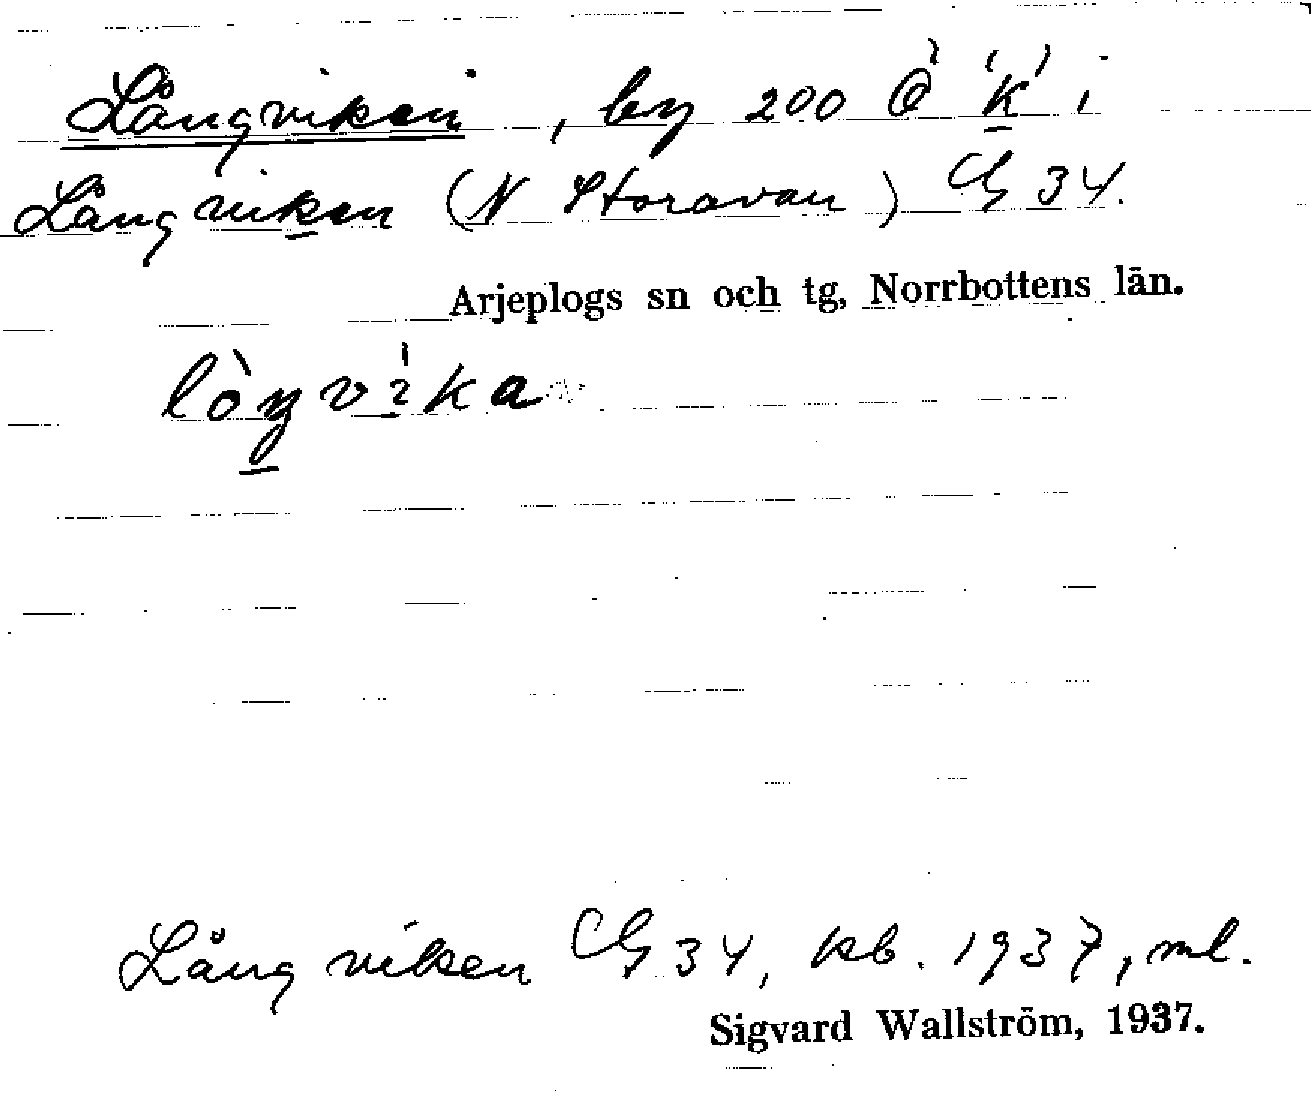 Långviken, by 200 Ö 'k' i
Långviken (N Storavan) CG 34.
Arjeplogs sn och tg, Norrbottens län.
lòŋvika
Långviken CG 34, kb. 1937, ml.
Sigvard Wallström, 1937.